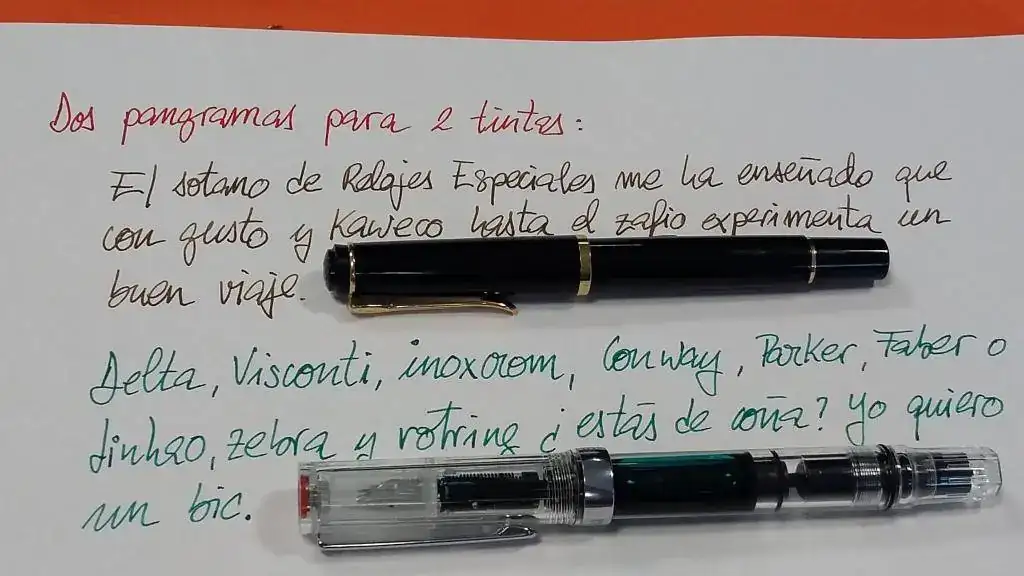 Dos pangramas para 2 tintas:
El sotano de Relojes Especiales me ha enseñado que
con gusto y Kaweco hasta el zafio experimenta un
buen viaje.
Delta, Visconti, inoxcrom, Conway, Parker, Faber o
jinhao, zebra y rotring ¿estás de coña? Yo quiero
un bic.